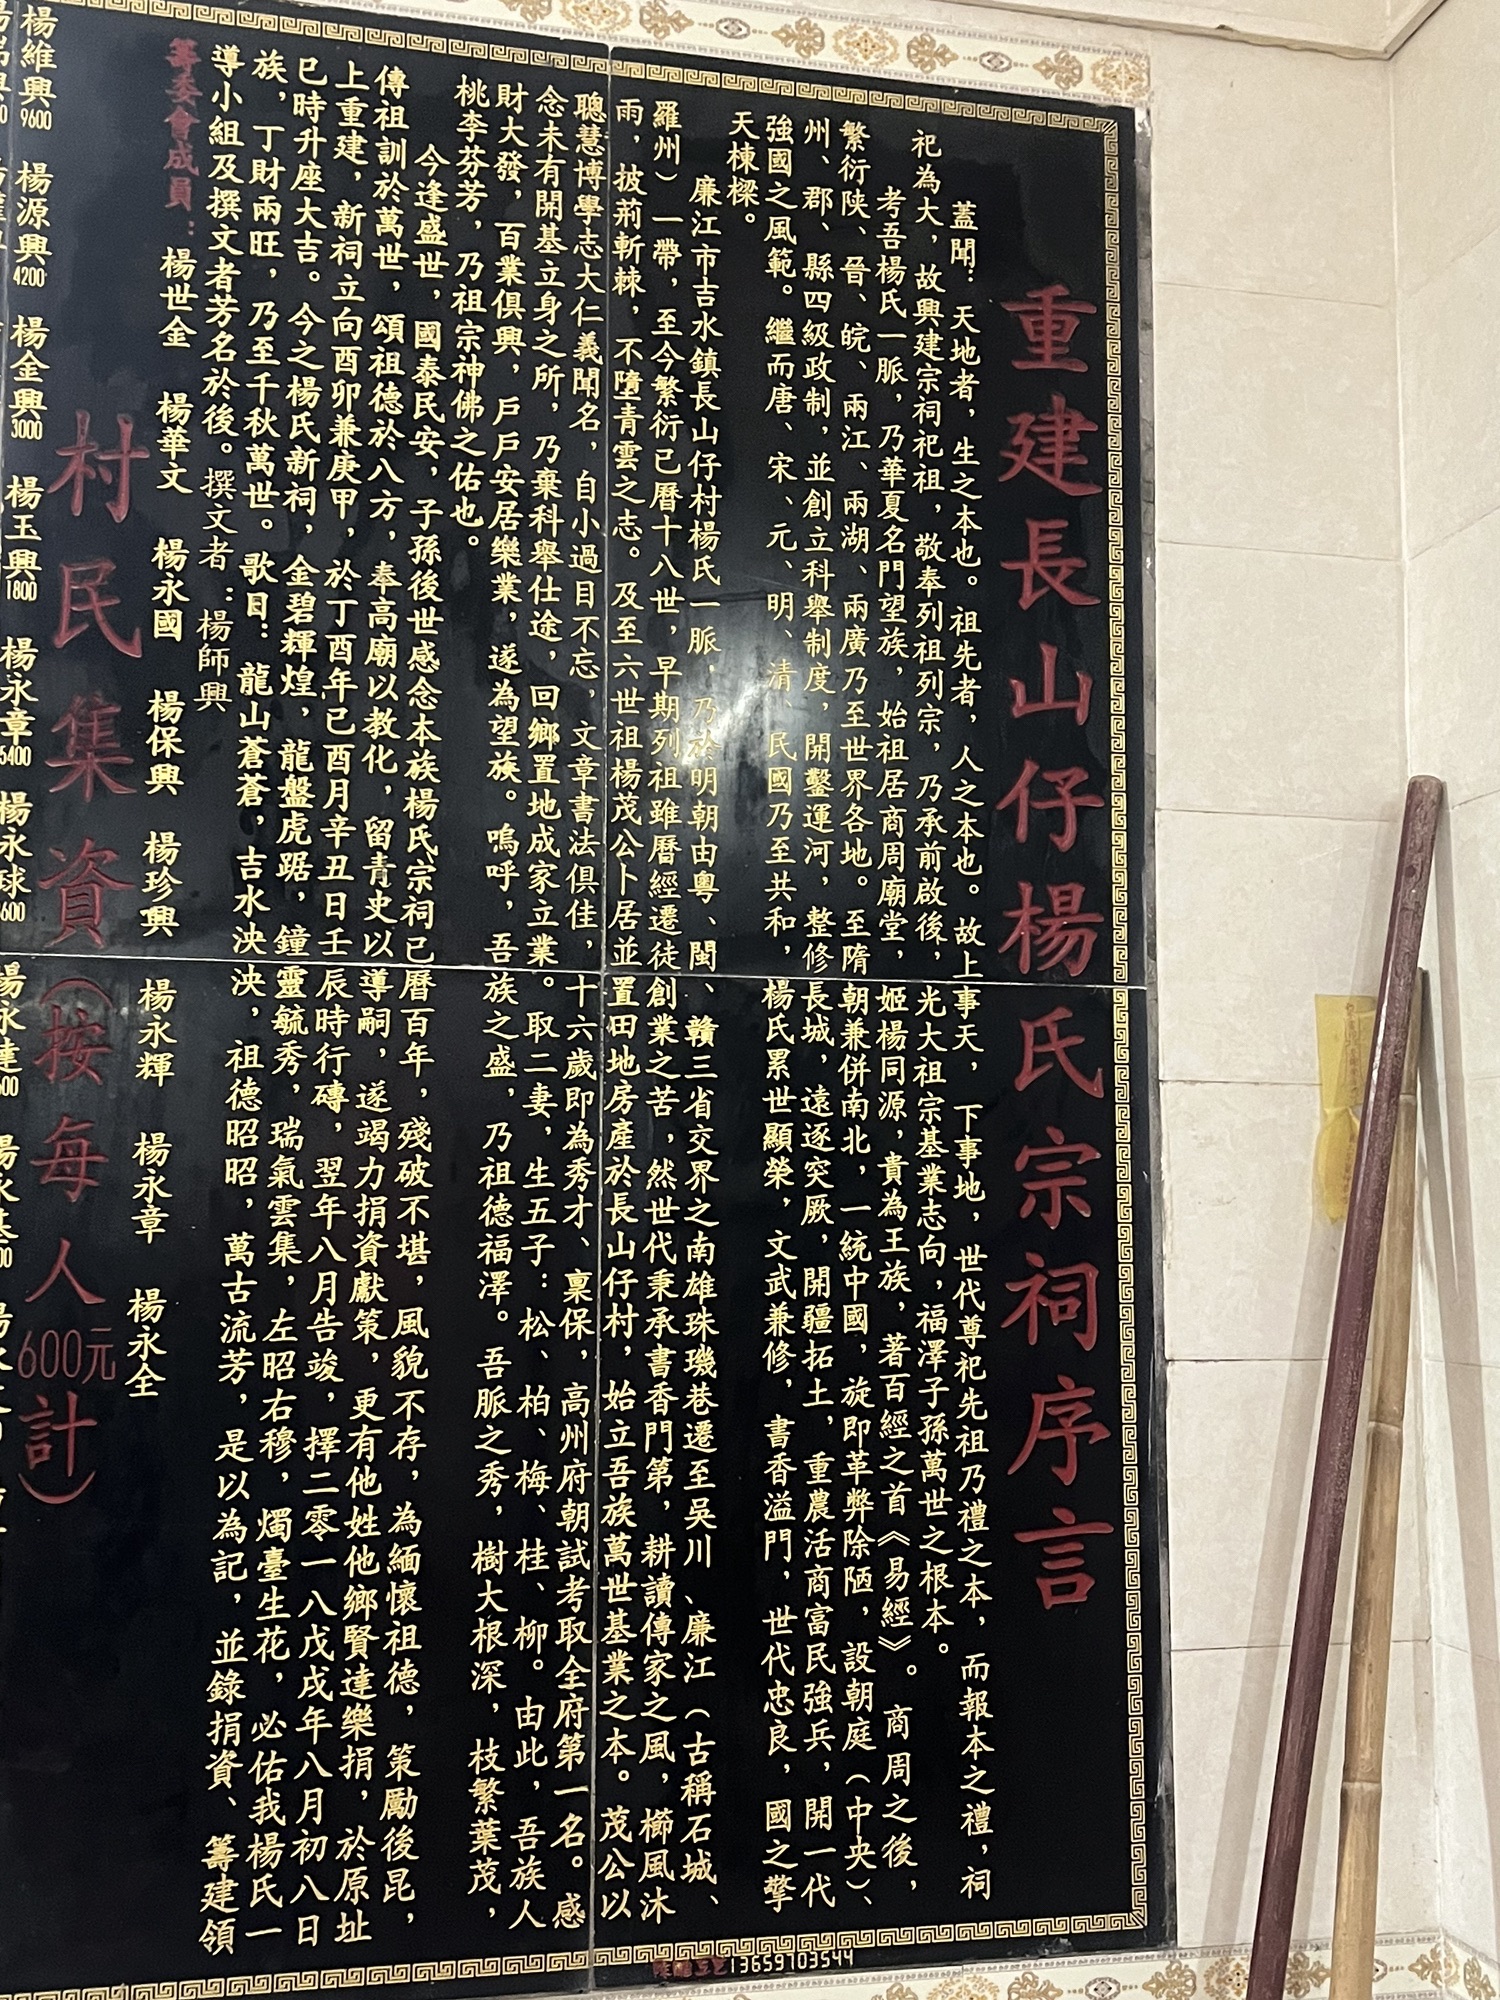 重建長山仔楊氏宗祠序言
蓋聞：天地者，生之本也。祖先者，人之本也。故上事天，下事地，世代尊祀先祖乃禮之本，而報本之禮，祠
祀為大，故興建宗祠祀祖，敬奉列祖列宗，乃承前啟後，光大祖宗基業志向，福澤子孫萬世之根本。
考吾楊氏一脈，乃華夏名門望族，始祖居商周廟堂，姬楊同源，貴為王族，著百經之首《易經》。商周之後，
繁衍陝、晉、皖、兩江、兩湖、兩廣乃至世界各地。至隋朝兼併南北，一統中國，旋即革弊除陋，設朝庭（中央）、
州、郡、縣四級政制，並創立科舉制度，開鑿運河，整修長城，遠逐突厥，開疆拓土，重農活商富民強兵，開一代
強國之風範。繼而唐、宋、元、明、清、民國乃至共和，楊氏累世顯榮，文武兼修，書香溢門，世代忠良，國之擎
天棟樑。
廉江市吉水鎮長山仔村楊氏一脈，乃於明朝由粵、閩、贛三省交界之南雄珠璣巷遷至吳川、廉江（古稱石城、
羅州）一帶，至今繁衍已曆十八世，早期列祖雖曆經遷徒創業之苦，然世代秉承書香門第，耕讀傳家之風，櫛風沐
雨，披荊斬棘，不墮青雲之志。及至六世祖楊茂公卜居並置田地房產於長山仔村，始立吾族萬世基業之本。茂公以
聰慧博學志大仁義聞名，自小過目不忘，文章書法俱佳，十六歲即為秀才、稟保，高州府朝試考取全府第一名。感
念未有開基立身之所，乃棄科舉仕途，回鄉置地成家立業。取二妻，生五子：松、柏、梅、桂、柳。由此，吾族人
財大發，百業俱興，戶戶安居樂業，遂為望族。嗚呼，吾族之盛，乃祖德福澤。吾脈之秀，樹大根深，枝繁葉茂，
桃李芬芳，乃祖宗神佛之佑也。
今逢盛世，國泰民安，子孫後世感念本族楊氏宗祠已曆百年，殘破不堪，風貌不存，為緬懷祖德，策勵後昆，
傳祖訓於萬世，頌祖德於八方，奉高廟以教化，留青史以導嗣，遂竭力捐資獻策，更有他姓他鄉賢達樂捐，於原址
上重建，新祠立向酉卯兼庚甲，於丁酉年已酉月辛丑日壬辰時行磚，翌年八月告竣，擇二零一八戊戌年八月初八日
已時升座大吉。今之楊氏新祠，金碧輝煌，龍盤虎踞，鐘靈毓秀，瑞氣雲集，左昭右穆，燭臺生花，必佑我楊氏一
族，丁財兩旺，乃至千秋萬世。歌曰：龍山蒼蒼，吉水泱泱，祖德昭昭，萬古流芳，是以為記，並錄捐資、籌建領
導小組及撰文者芳名於後。撰文者：楊師興
籌委會成員：楊世金 楊華文 楊永國 楊保興 楊珍興 楊永輝 楊永章 楊永全
村民集資（按每人600元計）
楊維興9600 楊源興4200 楊金興3000 楊玉興1800 楊永章5400 楊永球
13659703544